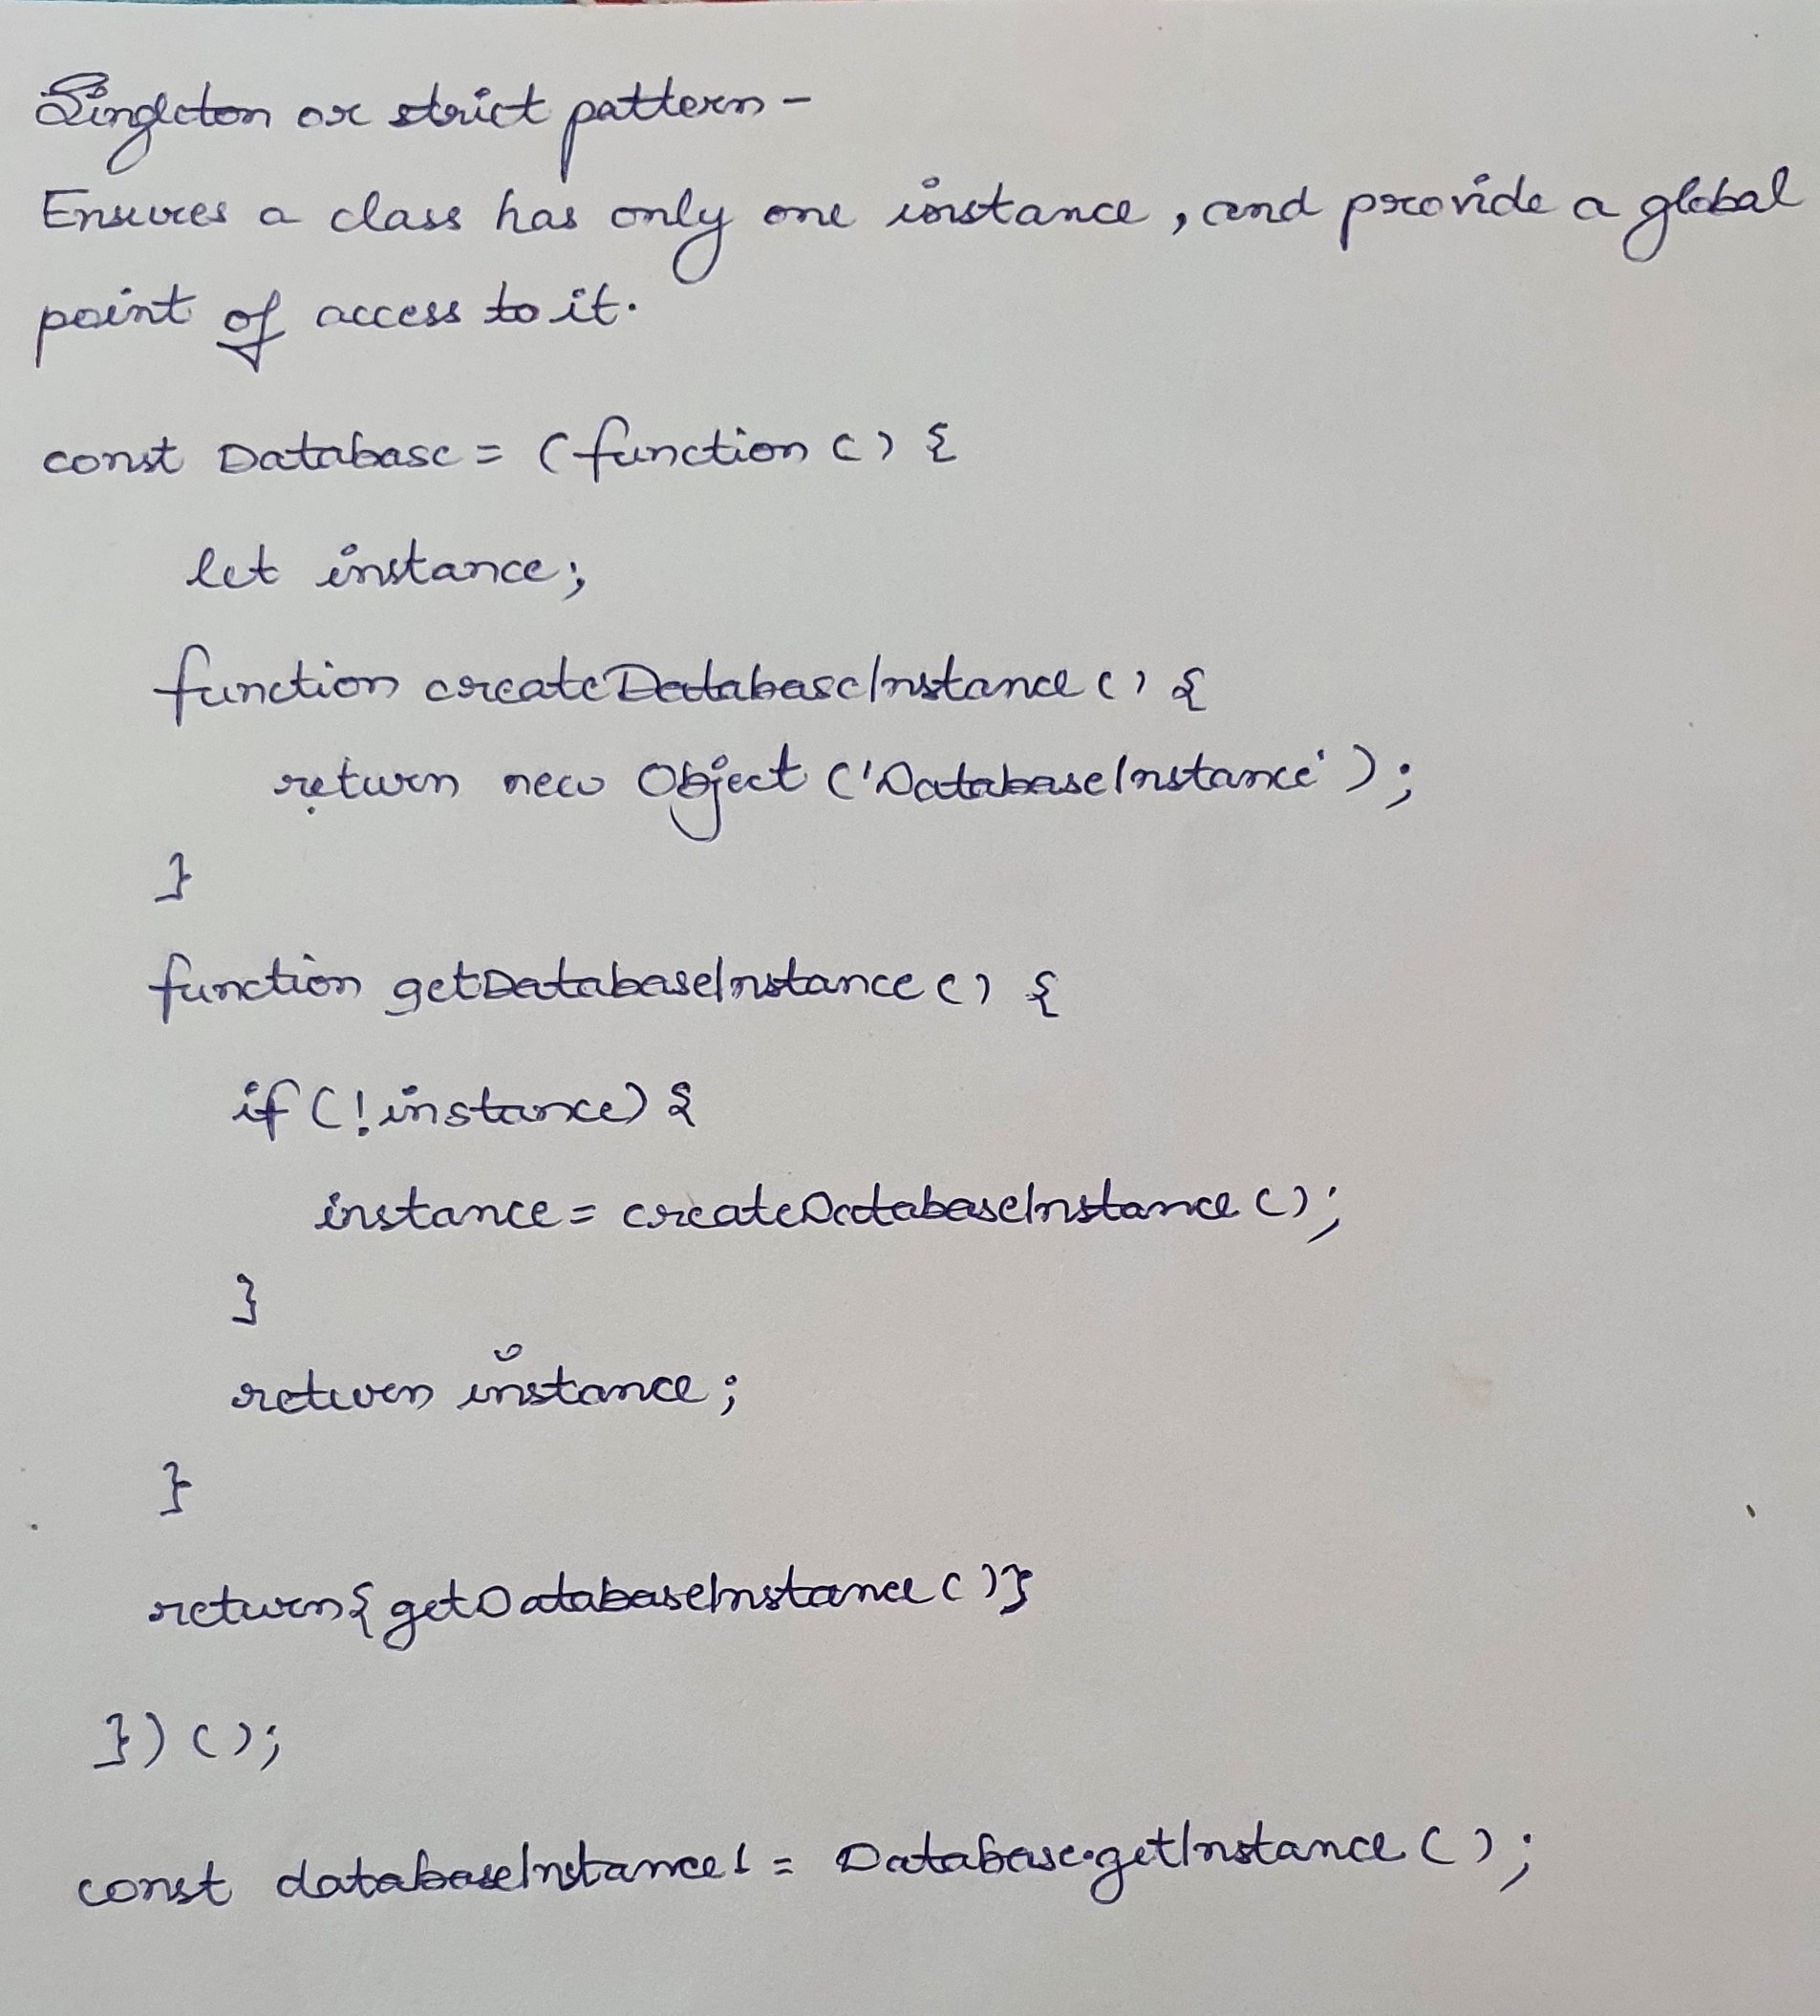 Singleton or strict pattern -
Ensures a class has only one instance, and provide a global
point of access to it.
const Database = (function () {
let instance;
function createDatabaseInstance () {
return new Object ('DatabaseInstance');
}
function getDatabaseInstance () {
if (!instance) {
instance = createDatabaseInstance ();
}
return instance;
}
return { getDatabaseInstance () }
}) ();
const databaseInstance1 = Database.getInstance ();